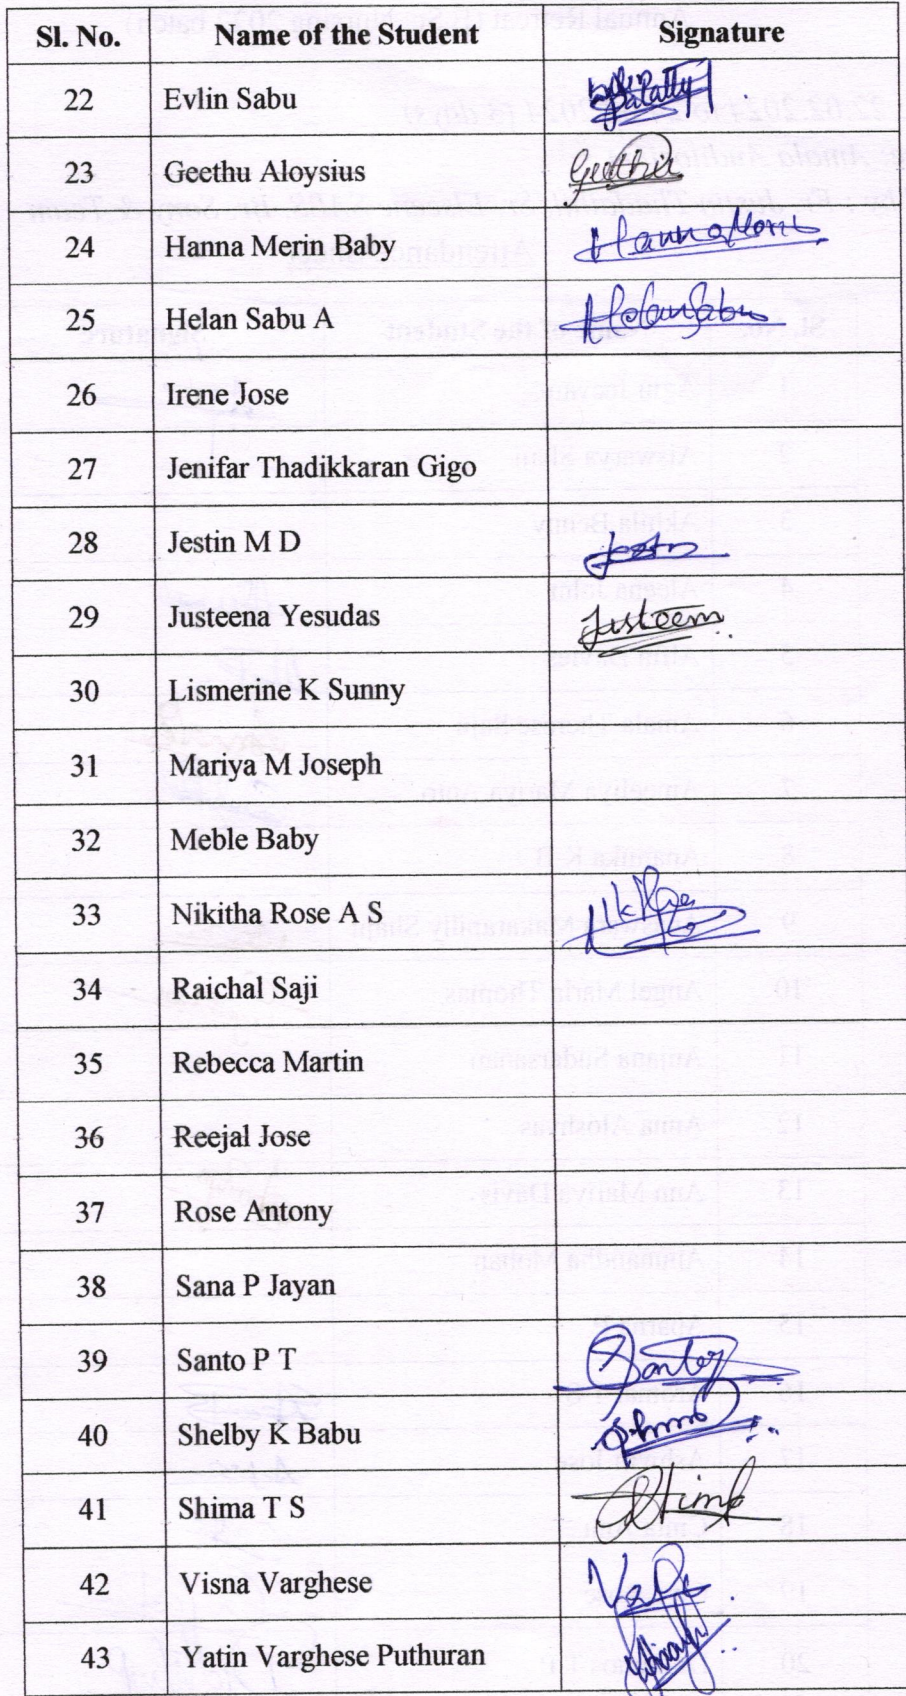 Sl. No. Name of the Student Signature
22 Evlin Sabu
23 Geethu Aloysius Geethu
24 Hanna Merin Baby Hanna Merin
25 Helan Sabu A Helan Sabu
26 Irene Jose
27 Jenifar Thadikkaran Gigo
28 Jestin M D Jestin
29 Justeena Yesudas Justeena
30 Lismerine K Sunny
31 Mariya M Joseph
32 Meble Baby
33 Nikitha Rose A S
34 Raichal Saji
35 Rebecca Martin
36 Reejal Jose
37 Rose Antony
38 Sana P Jayan
39 Santo P T Santo
40 Shelby K Babu
41 Shima T S Shima
42 Visna Varghese
43 Yatin Varghese Puthuran